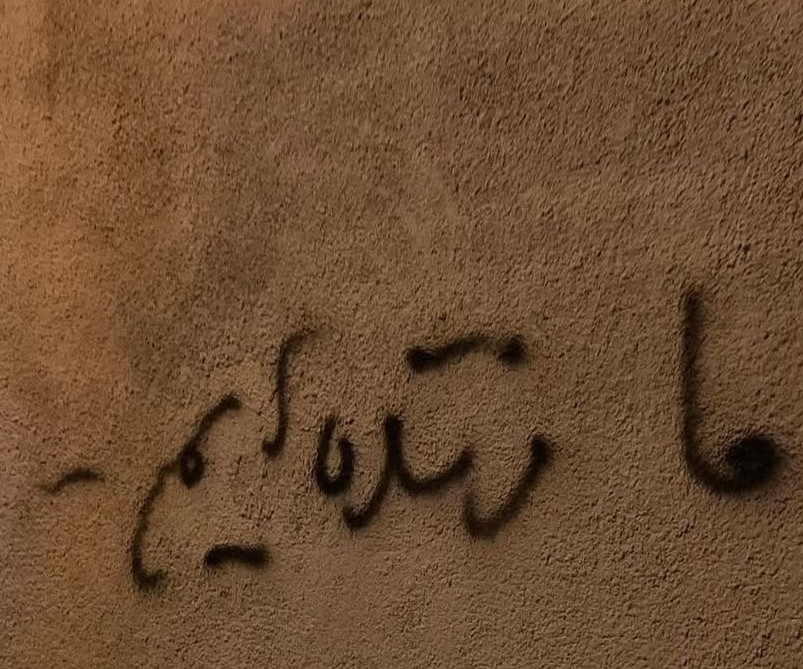 ما زنده ایم